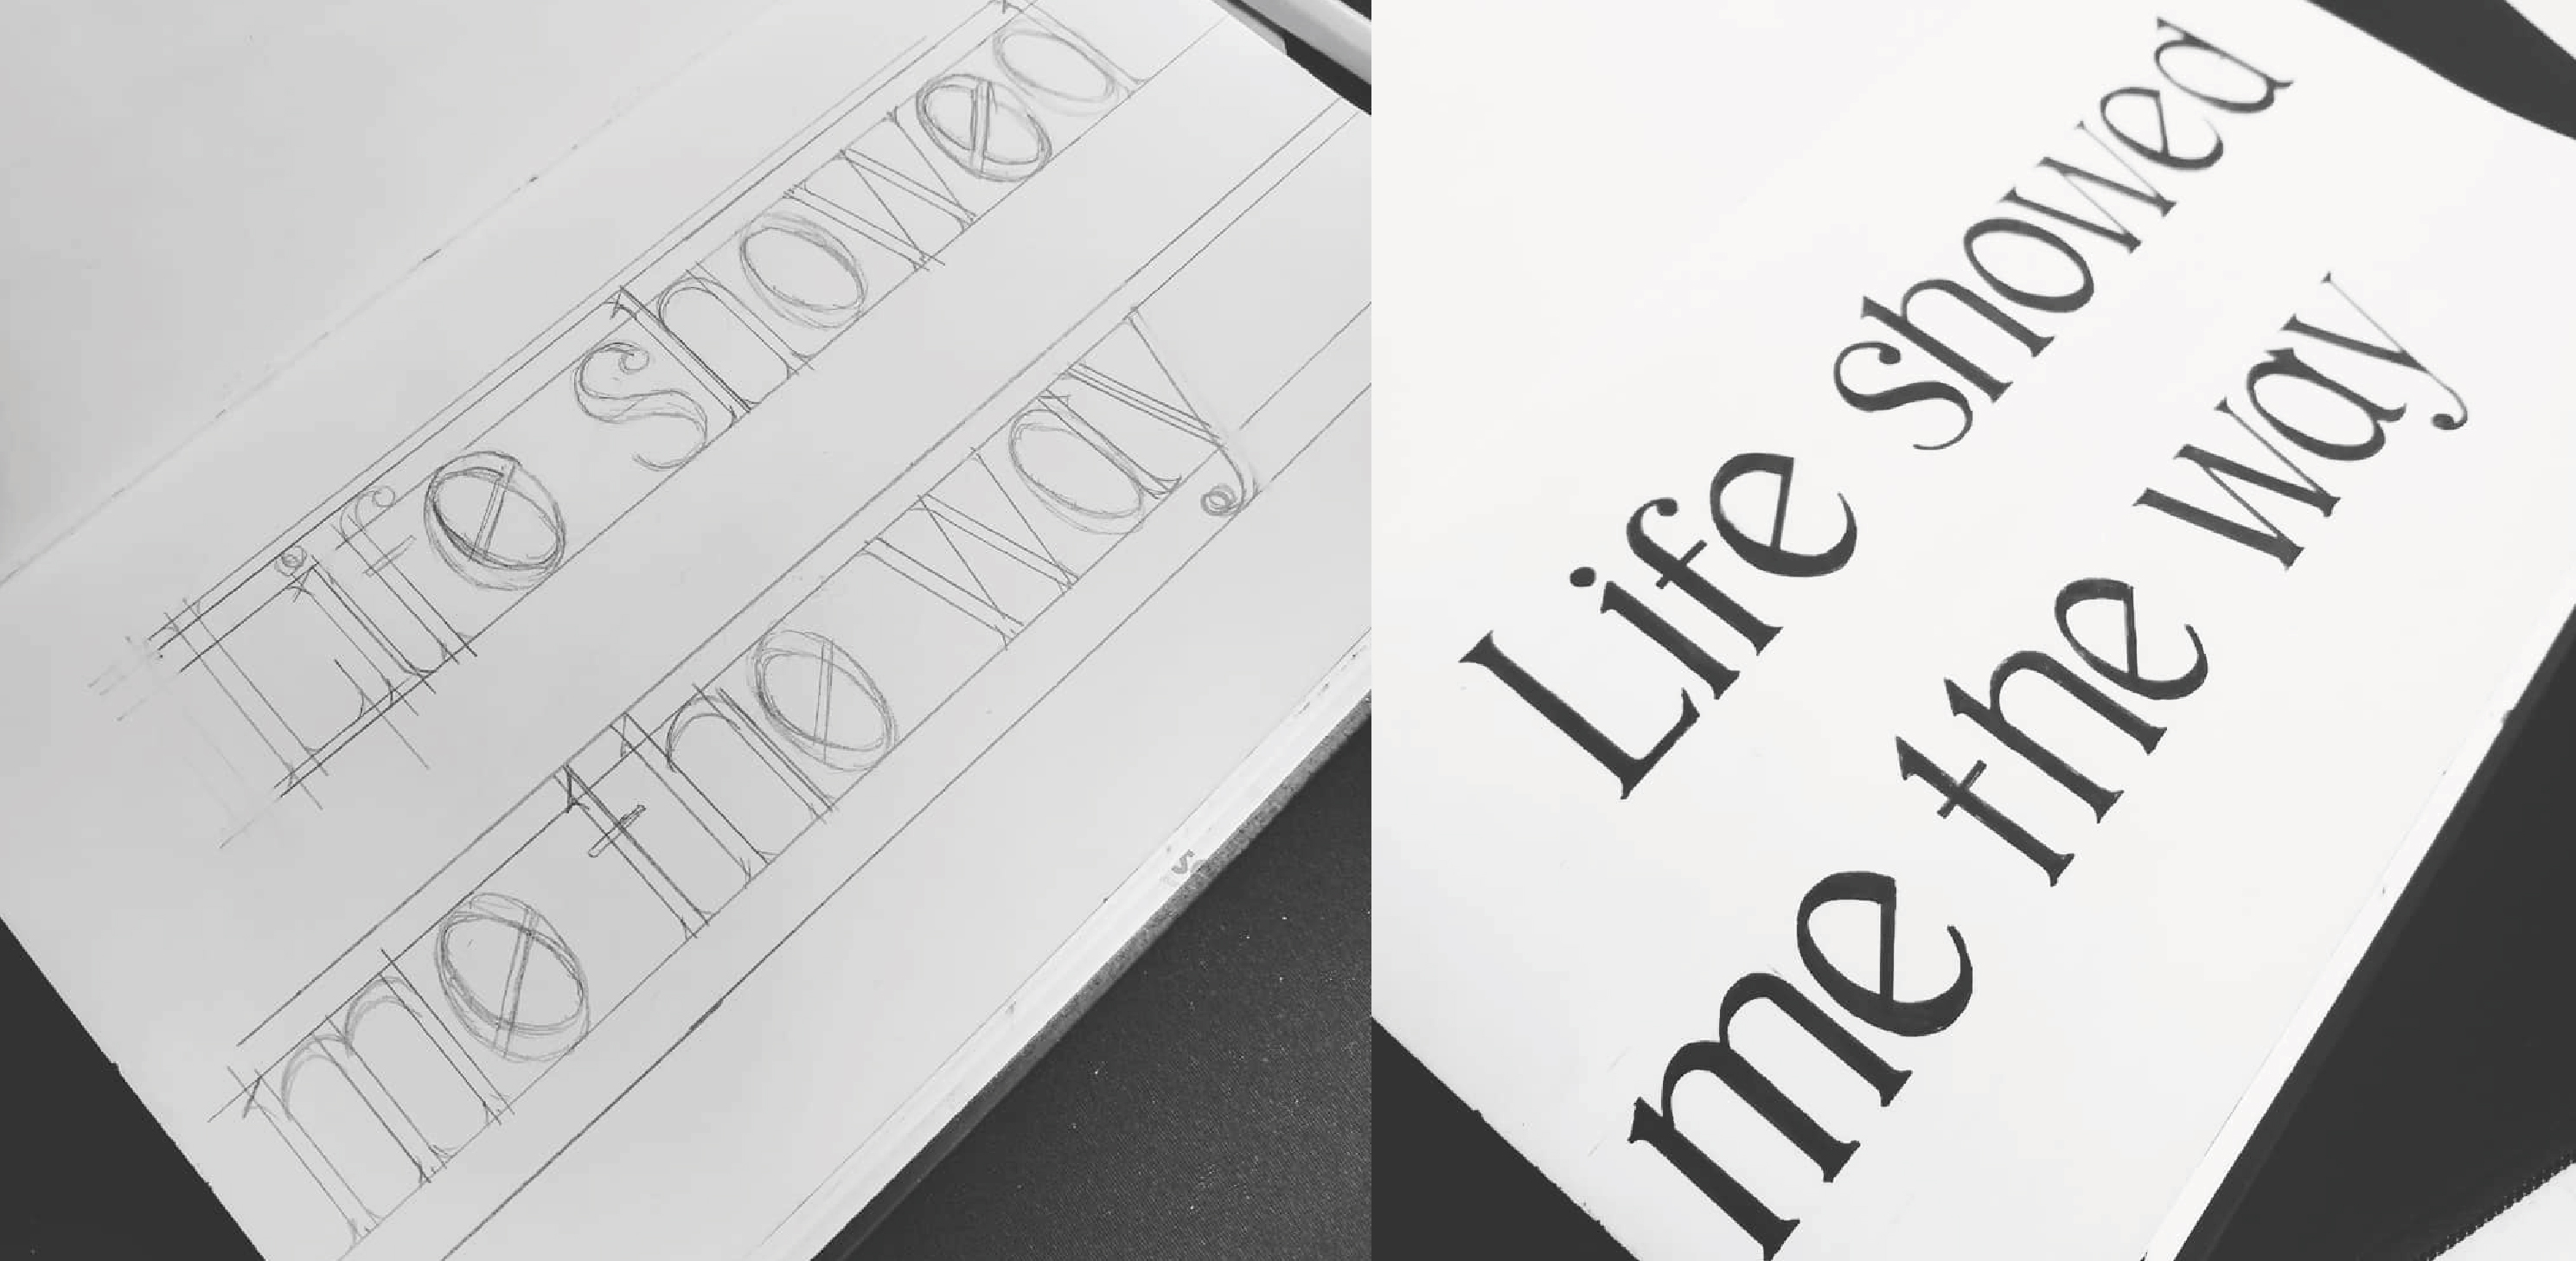 Life showed
me the way
Life showed
me the way